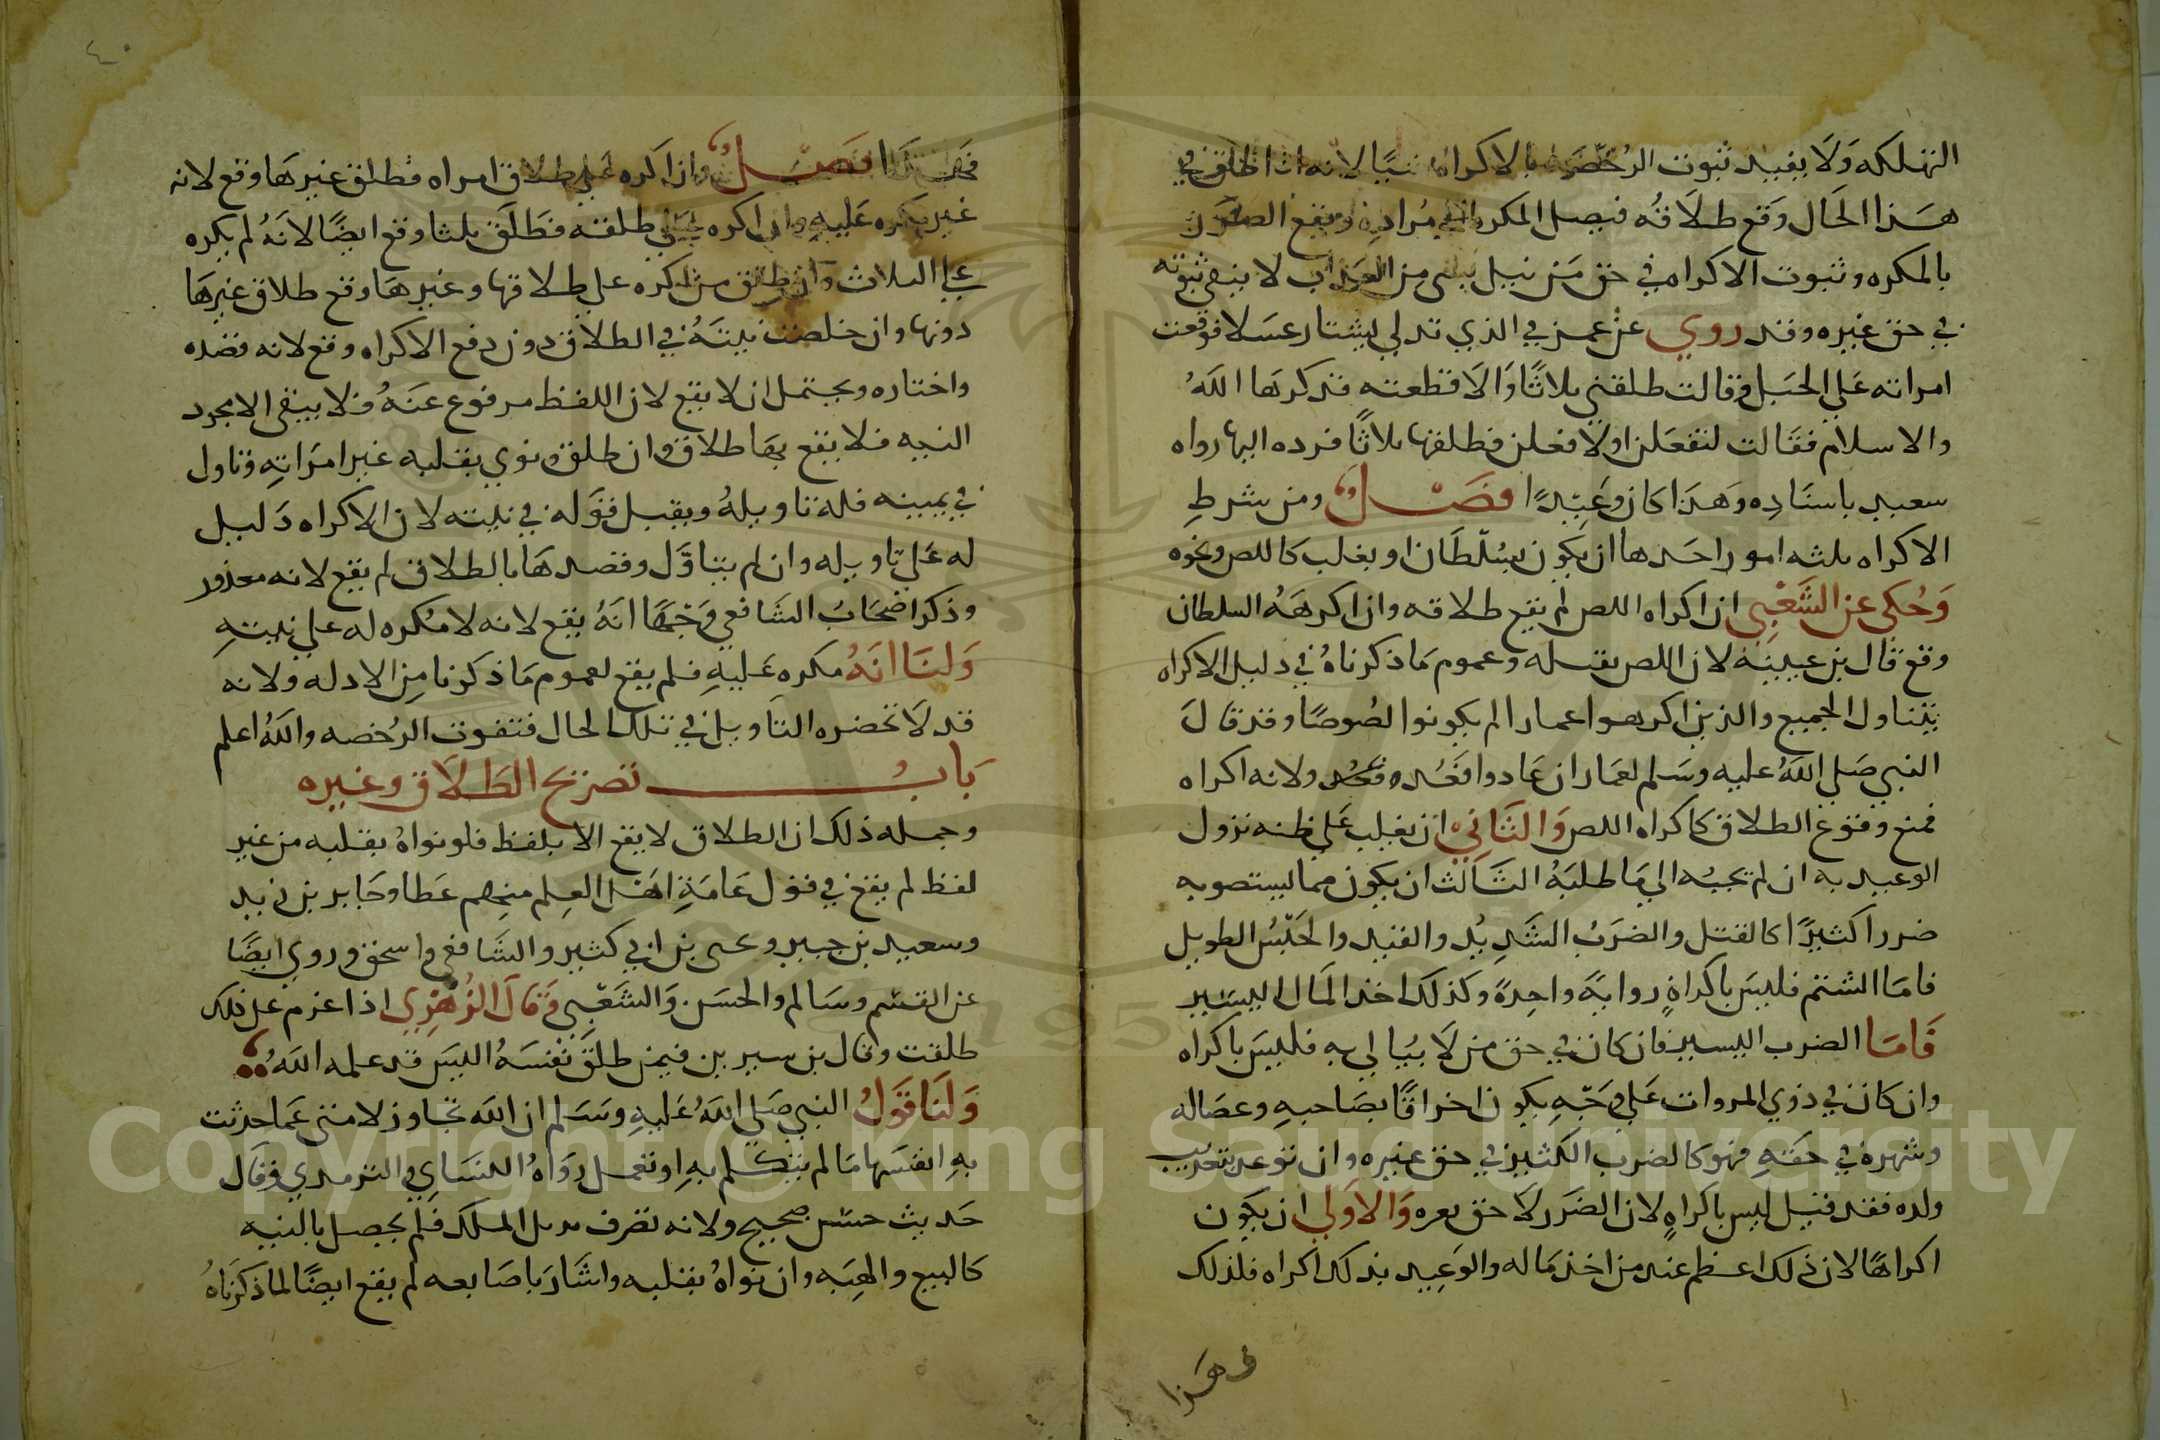 التهلكه ولا يفيد ثبوت الرخصه بالاكراه شيا لانه اذا طلق في
هذا الحال وقع طلاقه فيصل المكره الي مراده ويقع الضرر
بالمكره وثبوت الاكراه في حق من نيل بشي من العذاب لا ينفي ثبوته
في حق غيره وقد روي عن عمر في الذي تدلي يشتار عسلا فوقفت
امراته علي الحبل وقالت طلقني ثلاثا والا قطعته فذكرها الله
والاسلام فقالت لتفعلن او لافعلن فطلقها ثلاثا فرده اليها رواه
سعيد باسناده وهذا كان وعيدا فصل ومن شرط
الاكراه ثلثه امور احدها ان يكون بسلطان او بغلب كاللص ونحوه
وحكي عن الشعبي ان اكراه اللص لم يقع طلاقه وان اكرهه السلطان
وقع قال بن عيينة لان اللص يقتله وعموم ما ذكرناه في دليل الاكراه
يتناول الجميع والذين اكرهوا عمارا لم يكونوا لصوصا وقد قال
النبي صلي الله عليه وسلم لعمار ان عادوا فعد ولانه اكراه
فمنع وقوع الطلاق كاكراه اللص والثاني ان يغلب علي ظنه نزول
الوعيد به ان لم يجبه الي ما طلبه الثالث ان يكون مما يستضر به
ضررا كثيرا كالقتل والضرب الشديد والقيد والحبس الطويل
فاما الشتم فليس باكراه رواية واحدة وكذلك اخذ المال اليسير
فاما الضرب اليسير فان كان في حق من لا يبالي به فليس باكراه
وان كان في ذوي المروات علي وجه يكون اخراقا بصاحبه وغضا له
وشهرة في حقه فهو كالضرب الكثير في حق غيره وان توعد بتعذيب
ولده فقد قيل ليس باكراه لان الضرر لاحق بغيره والاولي ان يكون
اكراها لان ذلك اعظم عنده من اخذ ماله والوعيد بذلك اكراه فلذلك
وهذا
٤٠
فهكذا فصل وان اكره علي طلاق امراه فطلق غيرها وقع لانه
غير مكره عليه وان اكره علي طلقه فطلق ثلثا وقع ايضا لانه لم يكره
علي الثلاث وان طلق من اكره علي طلاقها وغيرها وقع طلاق غيرها
دونها وان خلصت نيته في الطلاق دون دفع الاكراه وقع لانه قصده
واختاره ويحتمل ان لا يقع لان اللفظ مرفوع عنه فلا يبقي الا مجرد
النيه فلا يقع بها طلاق وان طلق ونوي بقلبه غير امراته وتاول
في يمينه فله تاويله ويقبل قوله في نيته لان الاكراه دليل
له علي تاويله وان لم يتاول وقصدها بالطلاق لم يقع لانه معذور
وذكر اصحاب الشافعي وجها انه يقع لانه لا مكره له علي نيته
ولنا انه مكره عليه فلم يقع لعموم ما ذكرنا من الادله ولانه
قد لا تحضره التاويل في تلك الحال فتفوت الرخصه والله اعلم
باب تصريح الطلاق وغيره
وجمله ذلك ان الطلاق لا يقع الا بلفظ فلو نواه بقلبه من غير
لفظ لم يقع في قول عامة اهل العلم منهم عطا وجابر بن زيد
وسعيد بن جبير ويحيى بن ابي كثير والشافعي واسحق وروي ايضا
عن القسم وسالم والحسن والشعبي وقال الزهري اذا عزم علي ذلك
طلقت وقال بن سيرين فيمن طلق نفسه اليس قد علمه الله
ولنا قول النبي صلي الله عليه وسلم ان الله تجاوز لامتي عما حدثت
به انفسها ما لم تتكلم به او تعمل رواه النسائي والترمدي وقال
حديث حسن صحيح ولانه تصرف يزيل الملك فلم يحصل بالنيه
كالبيع والهبه وان نواه بقلبه واشار باصابعه لم يقع ايضا لما ذكرناه
Copyright © King Saud University
1957